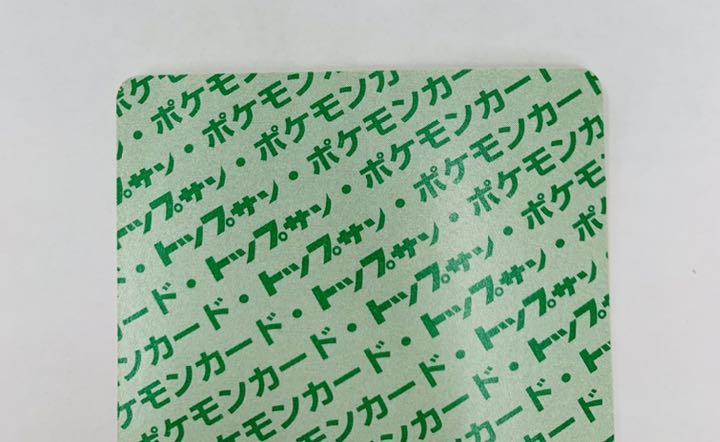 ポケモ
・ポケモン
サン・ポケモンカ
トップサン・ポケモンカー
・トップサン・ポケモンカード
ド・トップサン・ポケモンカード
カード・トップサン・ポケモンカ
ンカード・トップサン・ポケモ
モンカード・トップサン・ポ
ケモンカード・トップサン
ポケモンカード・トッ
ポケモンカード・